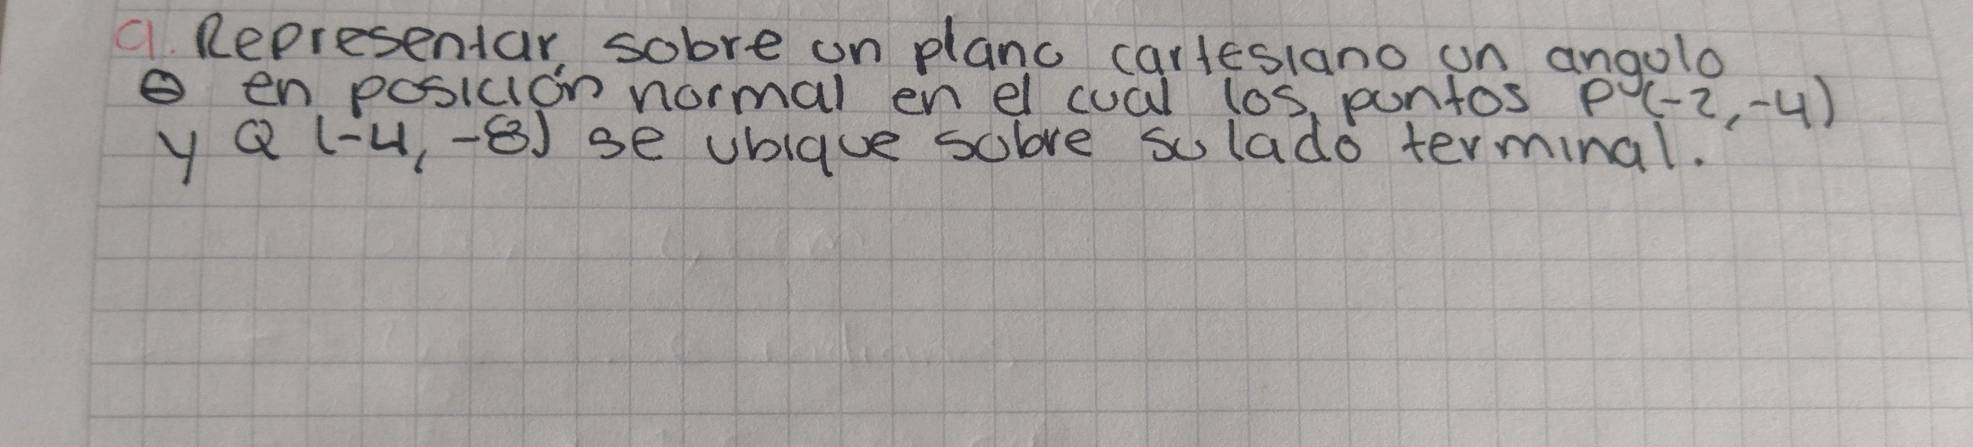 a. Representar sobre un plano cartesiano un angulo
θ en posición normal en el cual los puntos P(-2, -4)
y Q (-4, -8) se ubique sobre su lado terminal.